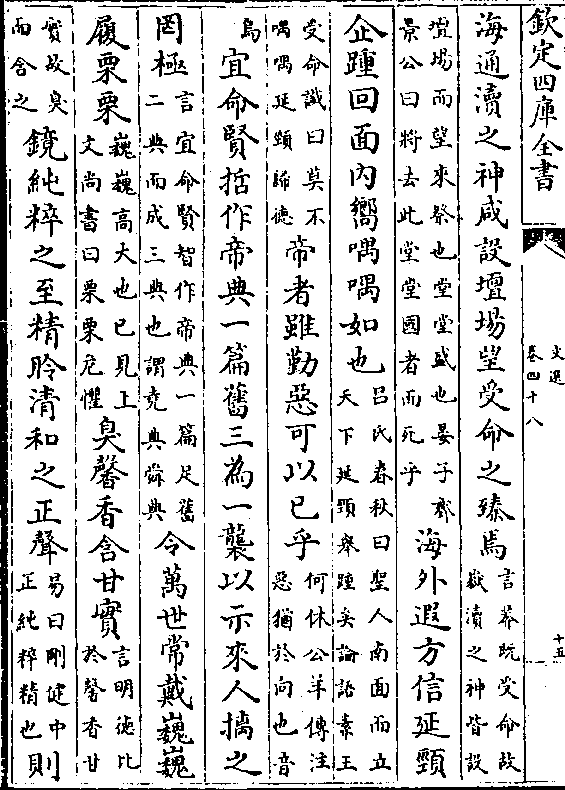 欽定四庫全書
文選
卷四十八
十五
海通瀆之神咸設壇場望受命之臻焉
言莽既受命故
嶽瀆之神皆設
壇場而望來祭也堂堂盛也晏子齊
景公曰將去此堂堂國者而死乎
海外遐方信延頸
企踵回面內嚮喁喁如也
呂氏春秋曰聖人南面而立
天下延頸舉踵矣論語素王
受命讖曰莫不
喁喁延頸歸德
帝者雖勤惡可以已乎
何休公羊傳注
惡猶於向也音
烏
宜命賢哲作帝典一篇舊三為一襲以示來人摛之
罔極
言宜命賢智作帝典一篇足舊
二典而成三典也謂堯典舜典
令萬世常戴巍巍
履栗栗
巍巍高大也已見上
文尚書曰栗栗危懼
臭馨香含甘實
言明德比
於馨香甘
實故臭
而含之
鏡純粹之至精聆清和之正聲
易曰剛健中
正純粹精也
則